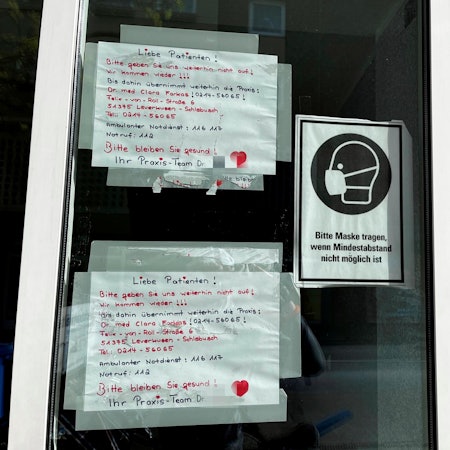 Liebe Patienten !
Bitte geben Sie uns weiterhin nicht auf!
Wir kommen wieder !!!
Bis dahin übernimmt weiterhin die Praxis:
Dr. med Clara Farkas ! 0214-56065 !
Felix-von-Roll-Straße 6
51375 Leverkusen - Schlebusch
Tel.: 0214-56065
Ambulanter Notdienst: 116 117
Notruf: 112
Bitte bleiben Sie gesund !
Ihr Praxis-Team Dr.
Bitte Maske tragen,
wenn Mindestabstand
nicht möglich ist
Liebe Patienten !
Bitte geben Sie uns weiterhin nicht auf!
Wir kommen wieder !!!
Bis dahin übernimmt weiterhin die Praxis:
Dr. med Clara Farkas ! 0214-56065 !
Felix-von-Roll-Straße 6
51375 Leverkusen - Schlebusch
Tel.: 0214-56065
Ambulanter Notdienst: 116 117
Notruf: 112
Bitte bleiben Sie gesund !
Ihr Praxis-Team Dr.